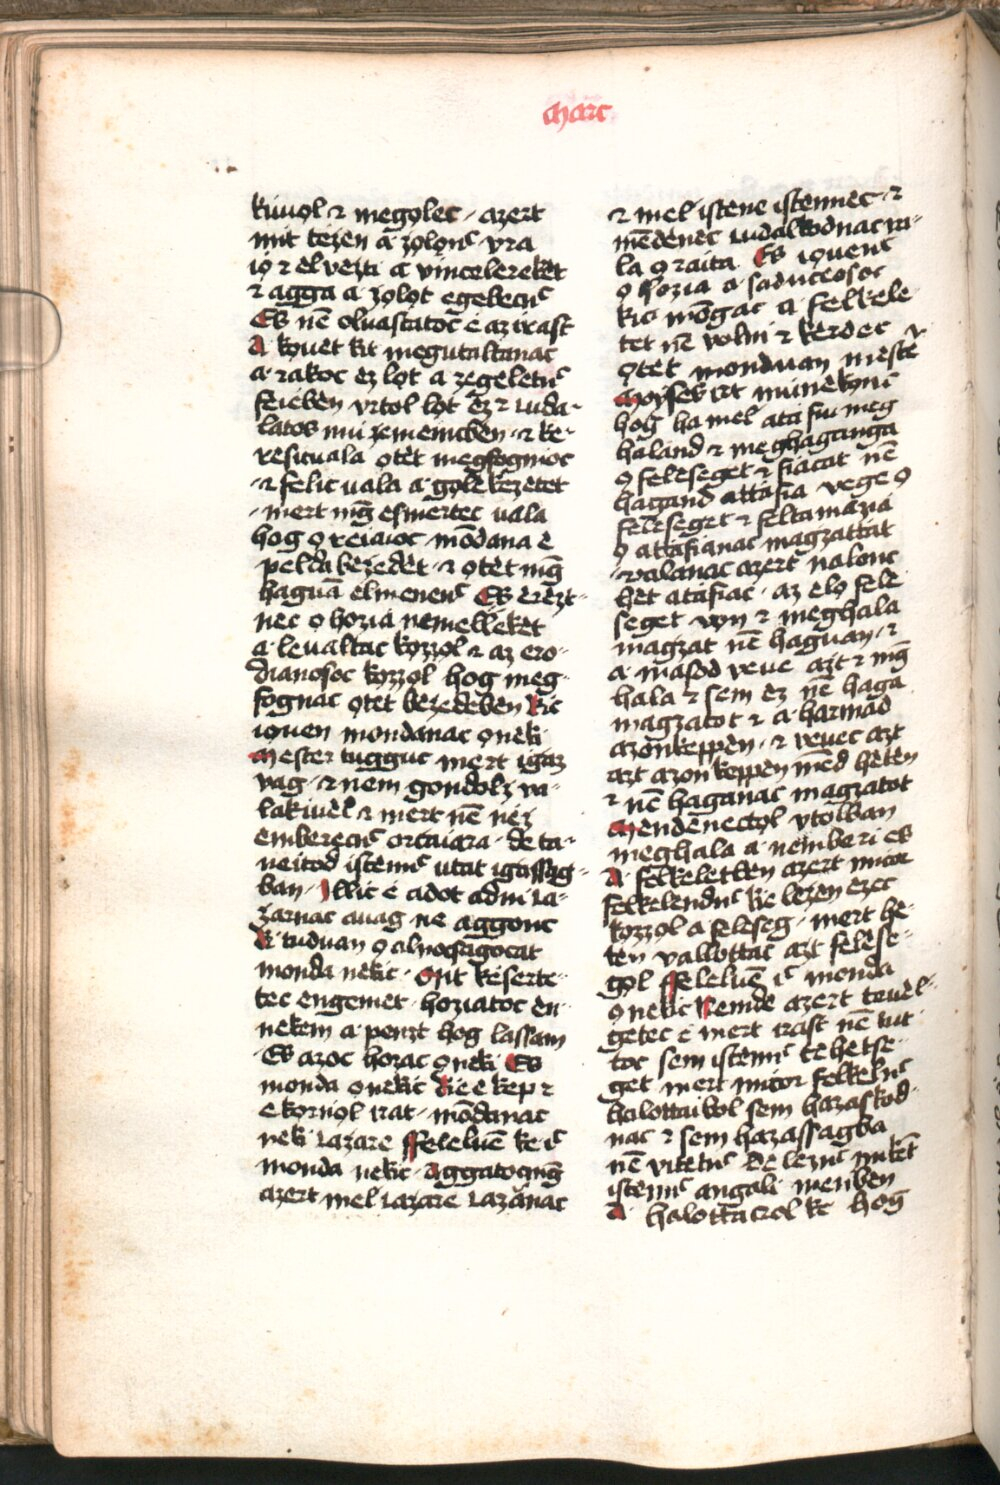 Marc
kiuol ⁊ megọlec · azert
mit tezen a zọlonc vra
iọ ⁊ el vezti a vincelereket
⁊ agga a zọlọt egebecnc
Es nē oluastatoc e az irast
A kọuet kit megutaltanac
a · rakoc ez lọt a zegeletnc
feieben vrtol lọt ez ⁊ čuda-
latos mu zemeincben · ⁊ ke-
resic uala ọtet megfognioc
· ⁊ felic uala a gọlekezetet
· mert mḡ esmertec uala
hog ọ reiaioc mōdana e
pelda bezedet · ⁊ ọtet mḡ
haguā elmenenc Es erezt-
nec ọ hozia nemelleket
a leualtac kozzọl ⁊ az ero-
dianosoc kozzọl hog meg-
fognac ọtet bezedeben Kic
iọuen mondanac ọneki
Mester tugguc mert igaz
vag · ⁊ nem gondolz va-
lakiuel ⁊ mert nē nez
emberecnc orcaiara · de ta-
neitod istennc vtat igassag-
ban · Illic e adot adni ča-
zarnac auag ne aggonc
Ki tuduan ọ alnocsagocat
monda nekic · Mit keserte-
tec engemet · hoziatoc en-
nekem a penzt hog lassam
· Es azoc hozac ọneki Es
monda ọnekic Kie e kep ⁊
e kọrnọl irat · mōdanac
neki čazare Feleluē ke ic
monda nekic · Aggatoc mḡ
azert mel čazare čazanac
⁊ mel istene istennec · ⁊
mēdenec čudalkodnac va-
la ọ raita Es iọuenc
ọ hozia a saduceosoc
kic mōgac a felkele
tet nē volni ⁊ kerdec v
ọtet monduan mester
Moyses irt minekọnc
hog ha mel atafiu meg
haland ⁊ meghagangă
ọ feleseget ⁊ fiacat nē
hagand attafia vege ọ
feleseget ⁊ feltamazia
ọ attafianac magzattat
· valanac azert nalonc
het atafiac · az elọ fele
seget vọn ⁊ meghala
magzat nē haguan · ⁊
a · masod veue azt ⁊ mḡ
hala ⁊ sem ez nē haga
magzatot ⁊ a · harmad
azonkeppen · ⁊ veuec azt
azt azon keppen mēd heten
⁊ nē haganac magzatot
Mendenectọl vtolban
meghala a nemberi es
A felkeletben azert micor
felkelendnc kie lezen ezec
kozzọl a feleseg · mert he-
ten vallottac azt felese-
gọl Feleluē ic monda
ọnekic Nemde azert teuel-
getec e mert irast nē tut
toc sem istennc tehetse-
get mert micor felkelnc
halottaibol sem hazaskod-
nac ⁊ sem hazassagba
nē vitetnc de leznc miket
istennc angali menben
A · halottacrol ke hog